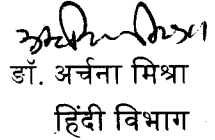 डॉ. अर्चना मिश्रा
हिंदी विभाग